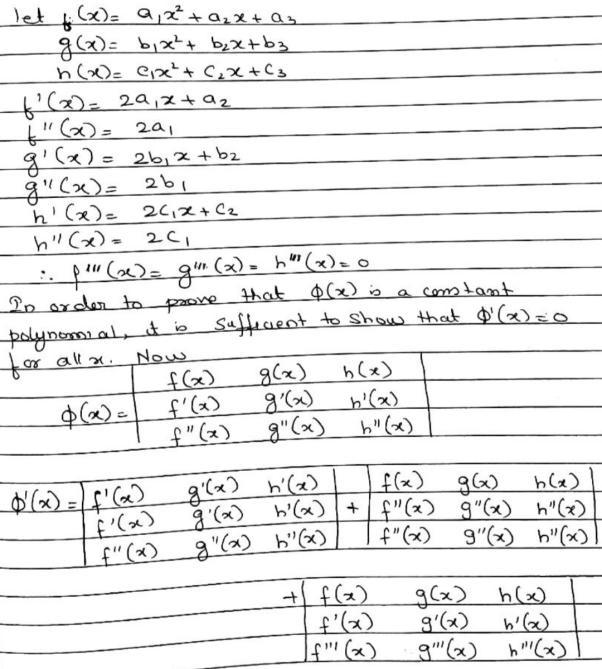 let f(x) = a₁x² + a₂x + a₃
g(x) = b₁x² + b₂x + b₃
h(x) = c₁x² + c₂x + c₃
f'(x) = 2a₁x + a₂
f''(x) = 2a₁
g'(x) = 2b₁x + b₂
g''(x) = 2b₁
h'(x) = 2c₁x + c₂
h''(x) = 2c₁
∴ f'''(x) = g'''(x) = h'''(x) = 0
In order to prove that ϕ(x) is a constant
polynomial, it is sufficient to show that ϕ'(x) = 0
for all x. Now
f(x) g(x) h(x)
ϕ(x) = | f'(x) g'(x) h'(x) |
f''(x) g''(x) h''(x)
ϕ'(x) = | f'(x) g'(x) h'(x) | | f(x) g(x) h(x) |
| f'(x) g'(x) h'(x) | + | f''(x) g''(x) h''(x) |
| f''(x) g''(x) h''(x) | | f''(x) g''(x) h''(x) |
+ | f(x) g(x) h(x) |
| f'(x) g'(x) h'(x) |
| f'''(x) g'''(x) h'''(x) |